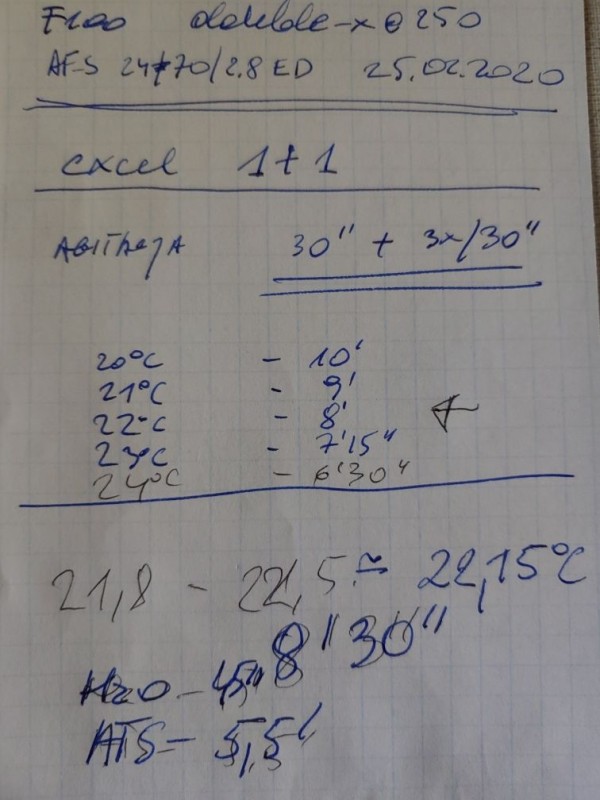 F100 double-x @ 250
AF-S 24-70/2.8 ED 25.02.2020
excel 1+1
30" + 3x/30"
20°C - 10'
21°C - 9'
22°C - 8'
23°C - 7'15"
24°C - 6'30"
21,8 - 22,5 ≃ 22,15°C
8" 30"
H2O - 45"
ATS - 5,5'